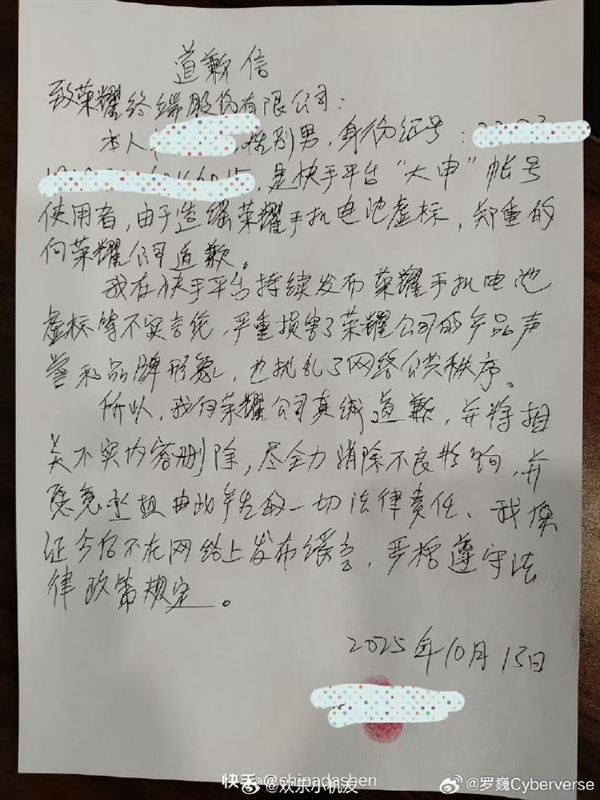 道歉信
致荣耀终端股份有限公司：
本人 性别男，身份证号：
，是快手平台“大申”帐号
使用者，由于造谣荣耀手机电池虚标，郑重的
向荣耀公司道歉。
我在快手平台持续发布荣耀手机电池
虚标等不实言论，严重损害了荣耀公司的产品声
誉和品牌形象，也扰乱了网络公共秩序。
所以，我向荣耀公司真诚道歉，并将相
关不实内容删除，尽全力消除不良影响，并
愿意承担由此产生的一切法律责任、我保
证今后不在网络上发布谣言，严格遵守法
律政策规定。
2025年10月13日
快手@chinadashen
@欢乐小机友
@罗巍Cyberverse